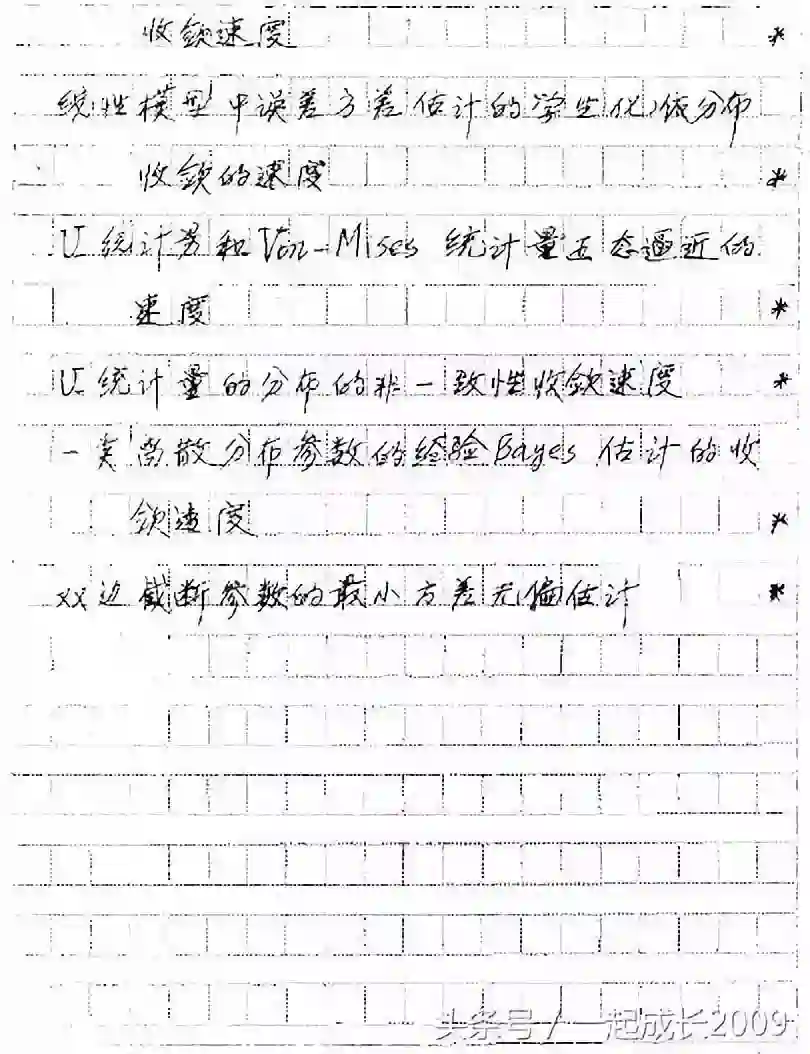 收敛速度 *
线性模型中误差方差估计的学生化依分布
收敛的速度 *
U 统计量和 Von-Mises 统计量正态逼近的
速度 *
U 统计量的分布的非一致性收敛速度 *
一类离散分布参数的经验 Bayes 估计的收
敛速度 *
双边截断参数的最小方差无偏估计 *
头条号 / 一起成长2009